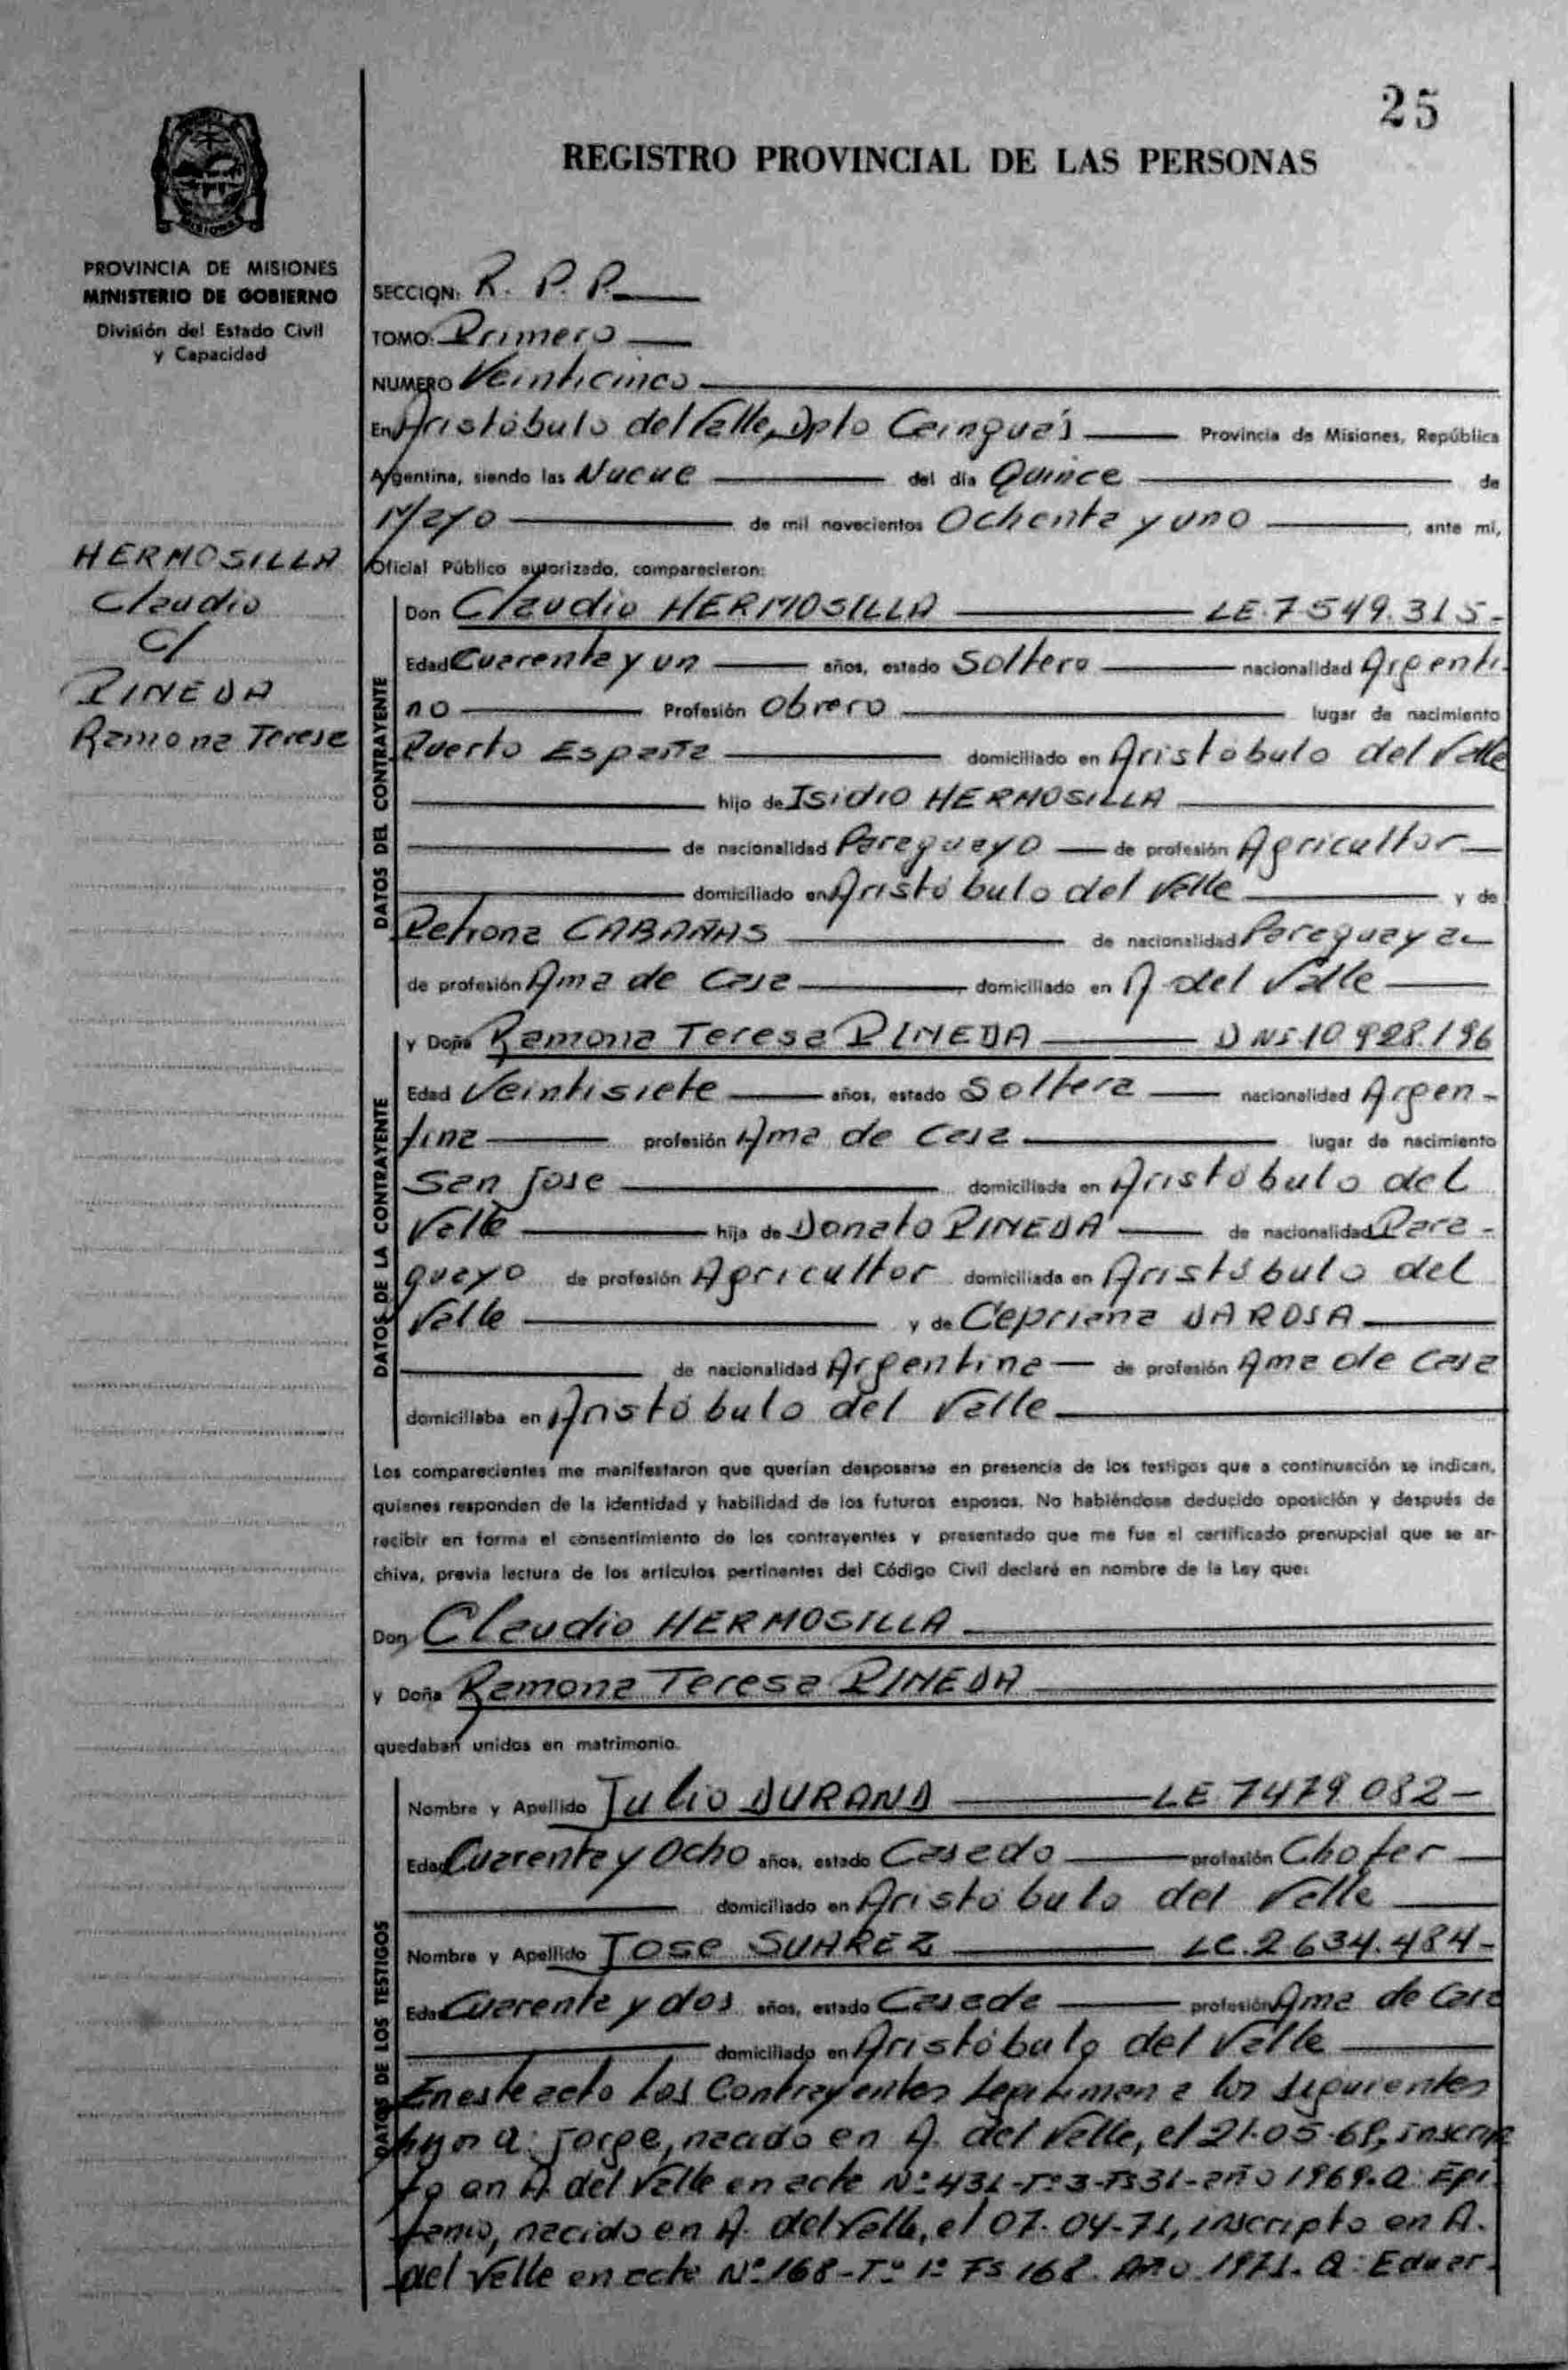 25
REGISTRO PROVINCIAL DE LAS PERSONAS
PROVINCIA DE MISIONES
MINISTERIO DE GOBIERNO
División del Estado Civil
y Capacidad
HERMOSILLA
Claudio
c/
PINEDA
Ramona Teresa
SECCION: R. P. P.
TOMO: Primero
NUMERO Veinticinco
En Aristóbulo del Valle, Dpto Cainguás Provincia de Misiones, República
Argentina, siendo las Nueve del día Quince de
Mayo de mil novecientos Ochenta y uno, ante mi,
Oficial Público autorizado, comparecieron:
DATOS DEL CONTRAYENTE
Don Claudio HERMOSILLA LE 7549.315-
Edad Cuarenta y un años, estado Soltero nacionalidad Argenti-
no Profesión Obrero lugar de nacimiento
Puerto España domiciliado en Aristóbulo del Valle
hijo de Isidio HERMOSILLA
de nacionalidad Paraguayo de profesión Agricultor
domiciliado en Aristóbulo del Valle y de
Petrona CABAÑAS de nacionalidad Paraguaya
de profesión Ama de Casa, domiciliado en A del Valle
DATOS DE LA CONTRAYENTE
y Doña Ramona Teresa PINEDA DNI 10.928.196
Edad Veintisiete años, estado Soltera nacionalidad Argen-
tina profesión Ama de Casa lugar de nacimiento
San Jose domiciliada en Aristóbulo del
Valle hija de Donato PINEDA de nacionalidad Para-
guayo de profesión Agricultor domiciliada en Aristóbulo del
Valle y de Cepriana DA ROSA
de nacionalidad Argentina de profesión Ama de Casa
domiciliaba en Aristóbulo del Valle
Los comparecientes me manifestaron que querían desposarse en presencia de los testigos que a continuación se indican,
quienes responden de la identidad y habilidad de los futuros esposos. No habiéndose deducido oposición y después de
recibir en forma el consentimiento de los contrayentes y presentado que me fue el certificado prenupcial que se ar-
chiva, previa lectura de los artículos pertinentes del Código Civil declaré en nombre de la Ley que:
Don Claudio HERMOSILLA
y Doña Ramona Teresa PINEDA
quedaban unidos en matrimonio.
DATOS DE LOS TESTIGOS
Nombre y Apellido Julio DURAND LE 7479 082-
Edad Cuarenta y Ocho años, estado Casado profesión Chofer
domiciliado en Aristóbulo del Valle
Nombre y Apellido Jose SUAREZ LC. 2634.484-
Edad Cuarenta y dos años, estado Casada profesión Ama de Casa
domiciliado en Aristóbulo del Valle
En este acto los Contrayentes legitiman a los siguientes
hijos a: Jorge, nacido en A. del Valle, el 21-05-69, inscrip
to en A del Valle en acta Nº 431-Tº3-Fs31-año 1969. a: Epi
fanio, nacido en A. del Valle, el 07-04-71, inscripto en A.
del Valle en acta Nº 168-Tº 1º Fs 168. Año 1971. a: Eduar-